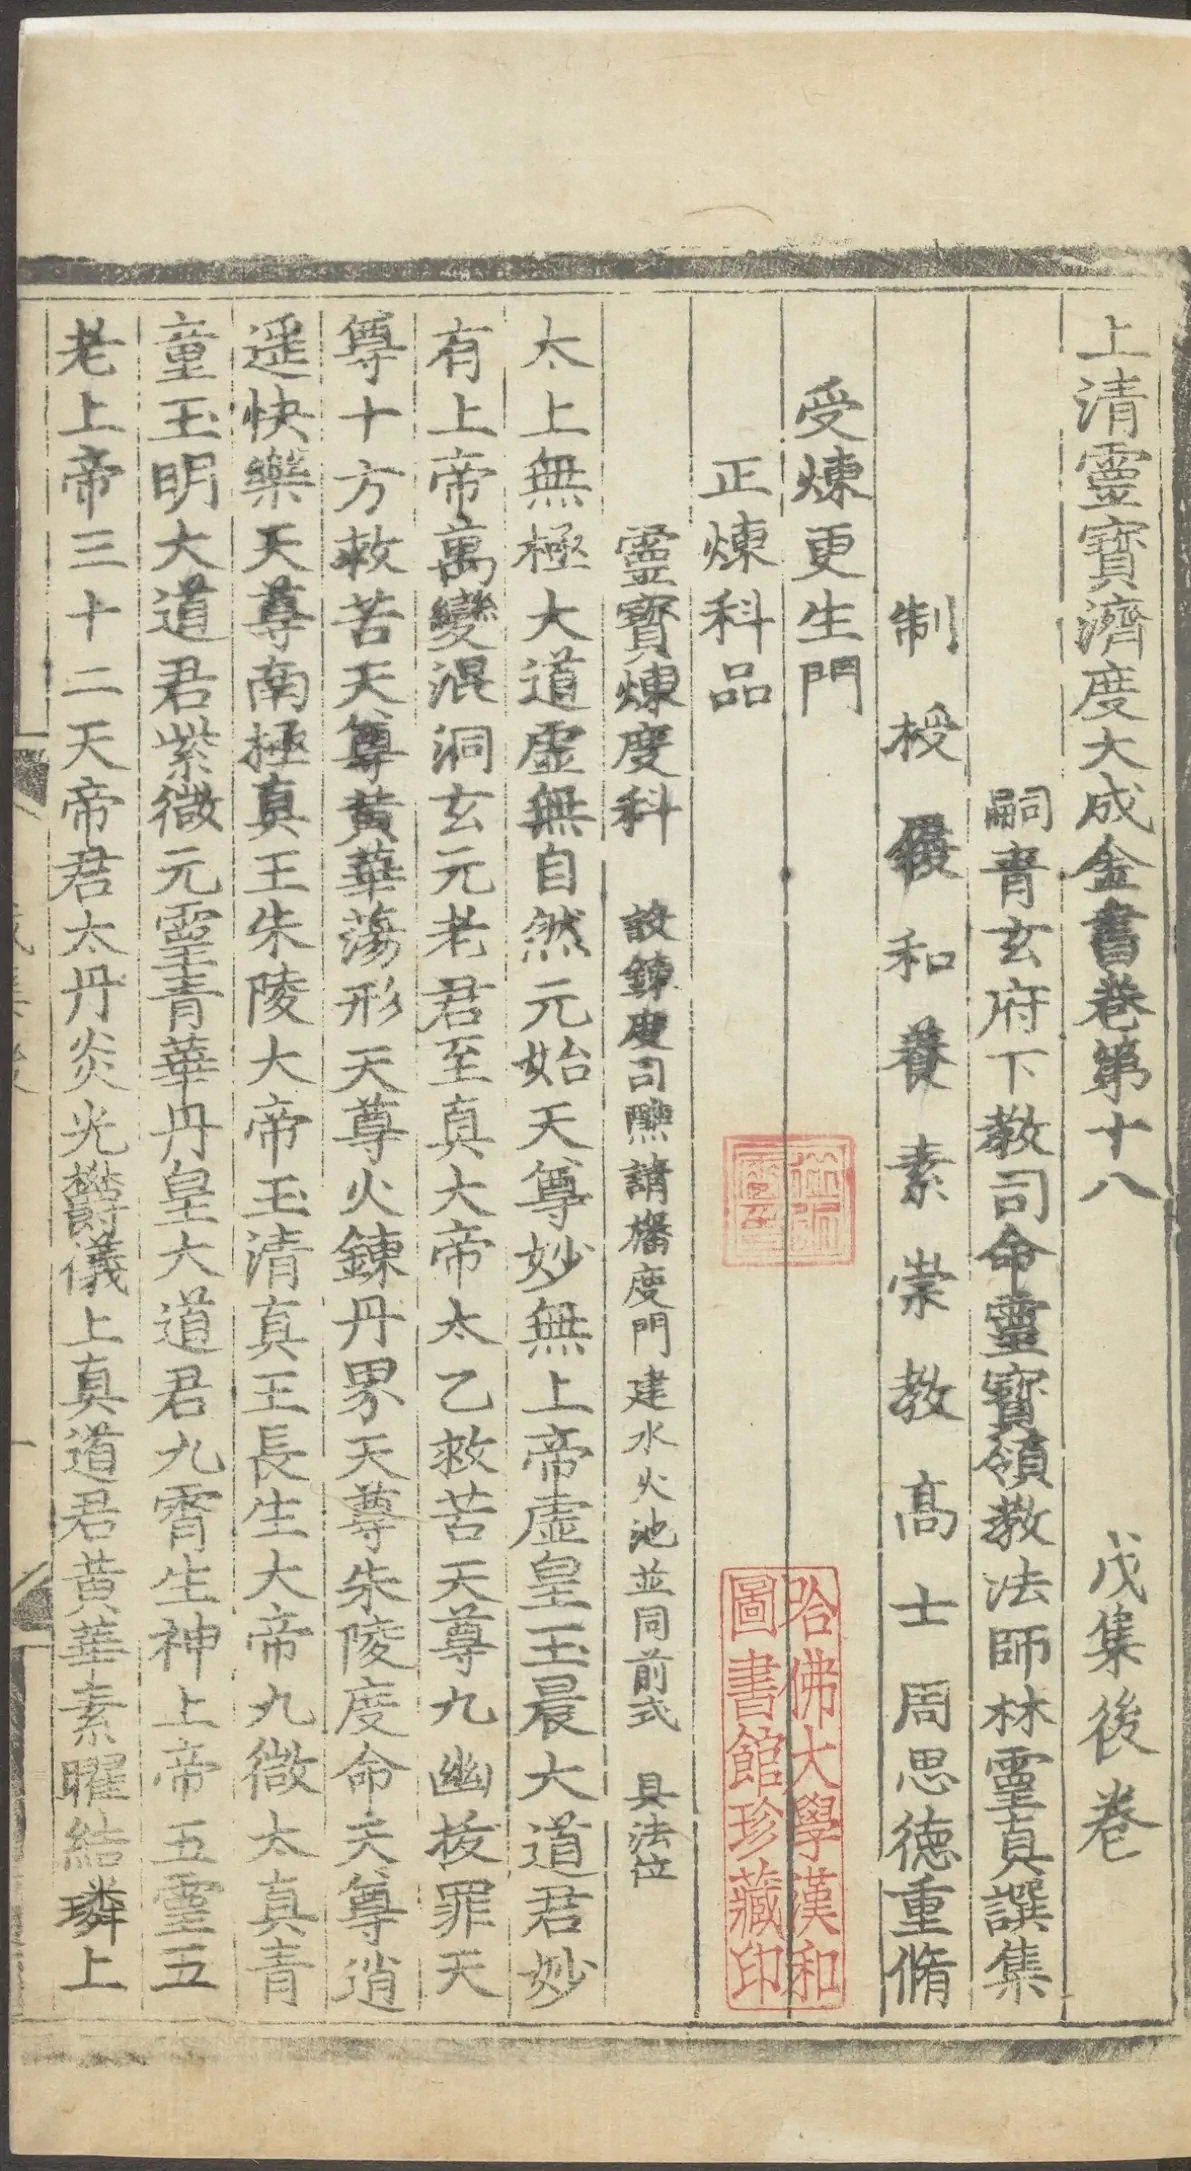 上清靈寶濟度大成金書卷第十八 戊集後卷
嗣青玄府下教司命靈寶領教法師林靈真譔集
制授履和養素崇教高士周思德重脩
受煉更生門
正煉科品
靈寶煉度科 設鍊度司牒請旛度門建水火池並同前式 具法位
太上無極大道虛無自然元始天尊妙無上帝虛皇玉晨大道君妙
有上帝萬變混洞玄元老君至真大帝太乙救苦天尊九幽拔罪天
尊十方救苦天尊黃華蕩形天尊火鍊丹界天尊朱陵度命天尊逍
遥快樂天尊南極真王朱陵大帝玉清真王長生大帝九微太真青
童玉明大道君紫微元靈青華丹皇大道君九霄生神上帝五靈五
老上帝三十二天帝君太丹炎光欎儀上真道君黃華素曜結璘上
哈佛大學漢和
圖書館珍藏印